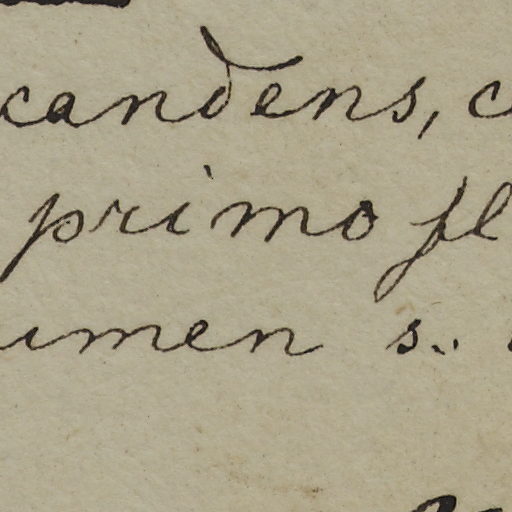 candens, c
primo fl
imen s..